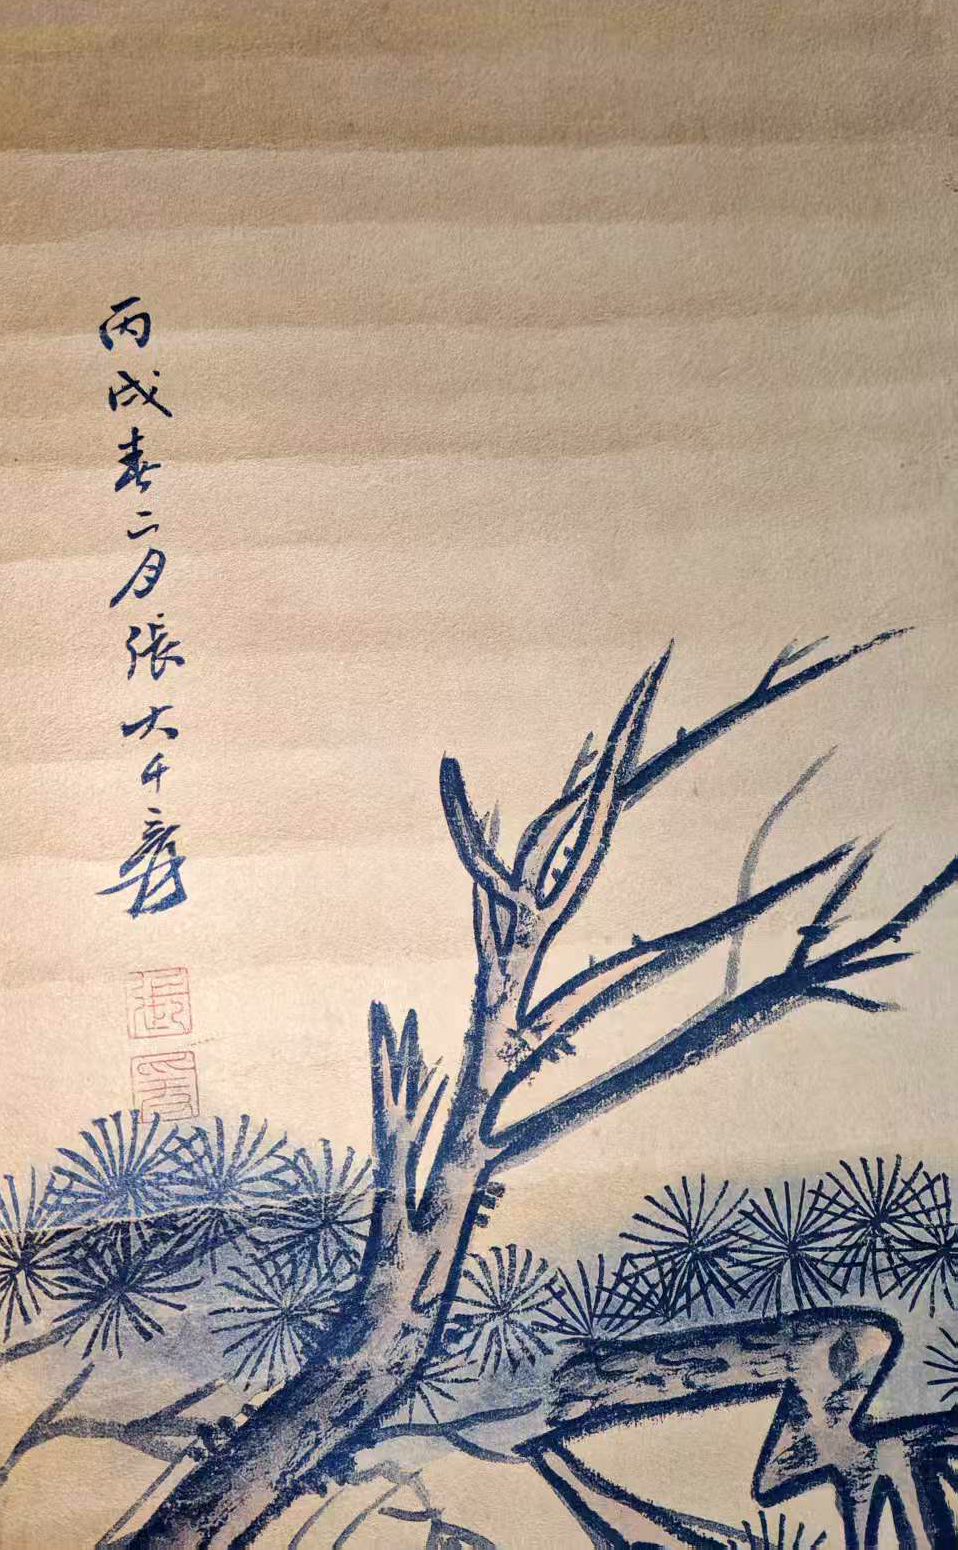 丙戌春二月張大千爰